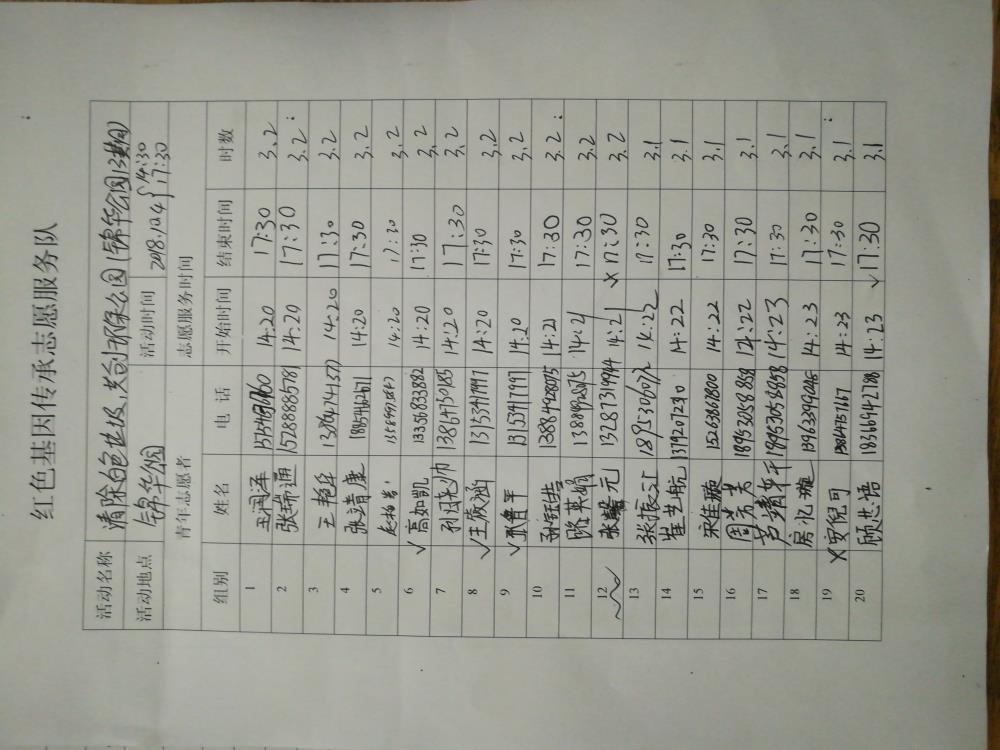 红色基因传承志愿服务队
活动名称 清除白色垃圾,共创环保公园(锦华公园)
活动地点 锦华公园 活动时间 2018.12.4 {14:30 17:30
青年志愿者 志愿服务时间
组别 姓名 电 话 开始时间 结束时间 时数
1 王润泽 14:20 17:30 3.2
2 张瑞通 15288885781 14:20 17:30 3.2
3 王艳华 14:20 17:30 3.2
4 张靖康 18854662671 14:20 17:30 3.2
5 14:20 17:30 3.2
6 ✓高如凯 13356833882 14:20 17:30 3.2
7 13864730185 14:20 17:30 3.2
8 ✓王宸涵 13153417997 14:20 17:30 3.2
9 ✓耿鲁平 13153417997 14:20 17:30 3.2
10 孙钰喆 13884928075 14:21 17:30 3.2
11 路英娟 14:21 17:30 3.2
12 张馨元 13287319944 14:21 ×17:30 3.2
13 张振汇 18953050572 14:22 17:30 3.1
14 崔艺航 13792072310 14:22 17:30 3.1
15 宋佳璇 15263861800 14:22 17:30 3.1
16 周芳芳 18953058858 14:22 17:30 3.1
17 18953058858 14:23 17:30 3.1
18 房沁璇 13963399646 14:23 17:30 3.1
19 ×安倪可 14:23 17:30 3.1
20 顾思语 18366942788 14:23 ✓17:30 3.1